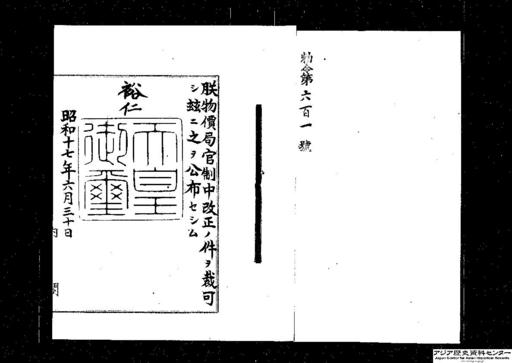 勅令第六百一號
朕物價局官制中改正ノ件ヲ裁可
シ玆ニ之ヲ公布セシム
裕仁
天皇
御璽
昭和十七年六月三十日
内
閣
アジア歴史資料センター
Japan Center for Asian Historical Records